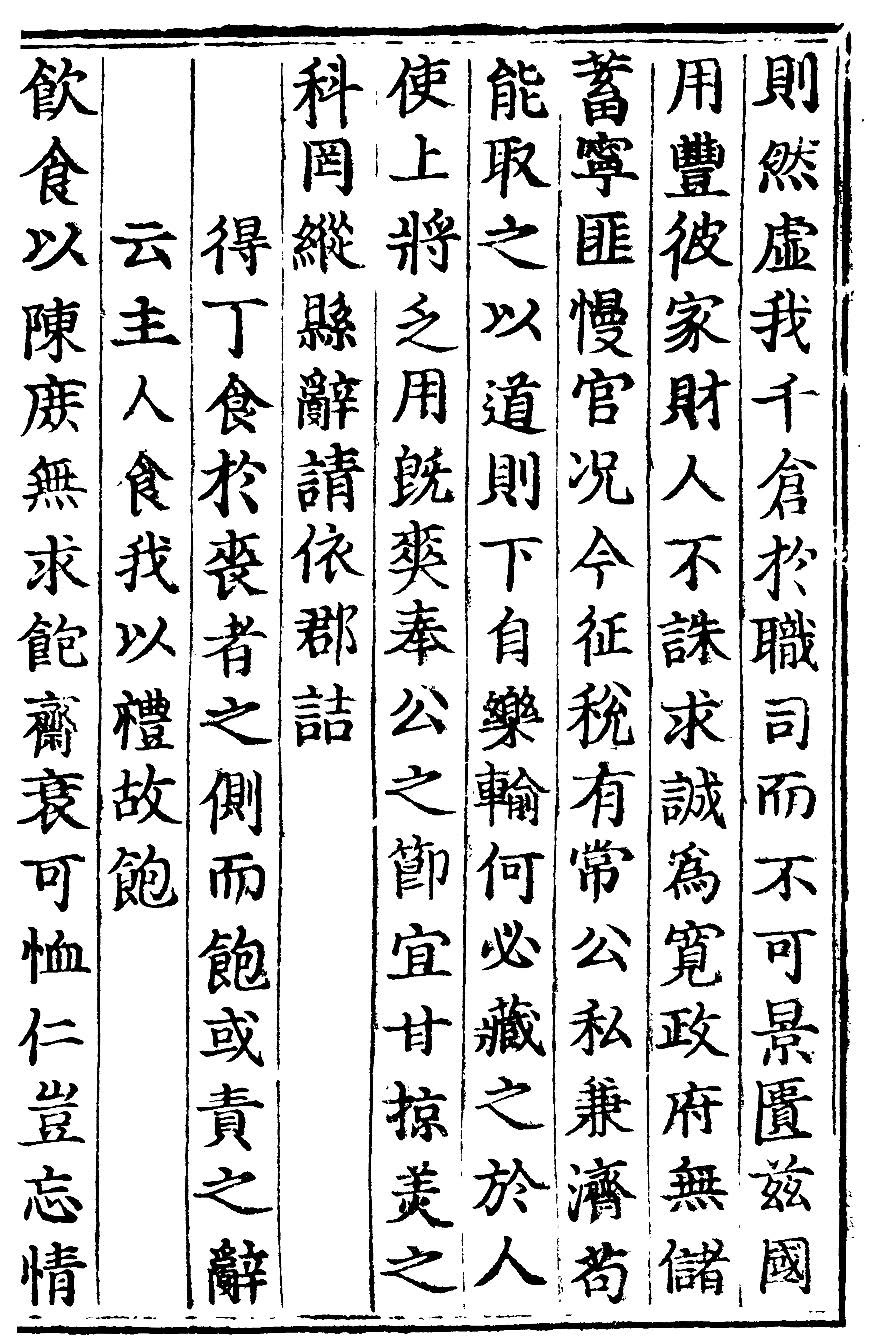 則然虛我千倉於職司而不可景匱茲國
用豐彼家財人不誅求誠為寬政府無儲
蓄寧匪慢官况今征稅有常公私兼濟苟
能取之以道則下自樂輸何必藏之於人
使上將乏用旣爽奉公之節宜甘掠美之
科罔縱縣辭請依郡詰
得丁食於喪者之側而飽或責之辭
云主人食我以禮故飽
飲食以陳庻無求飽齋衰可恤仁豈忘情